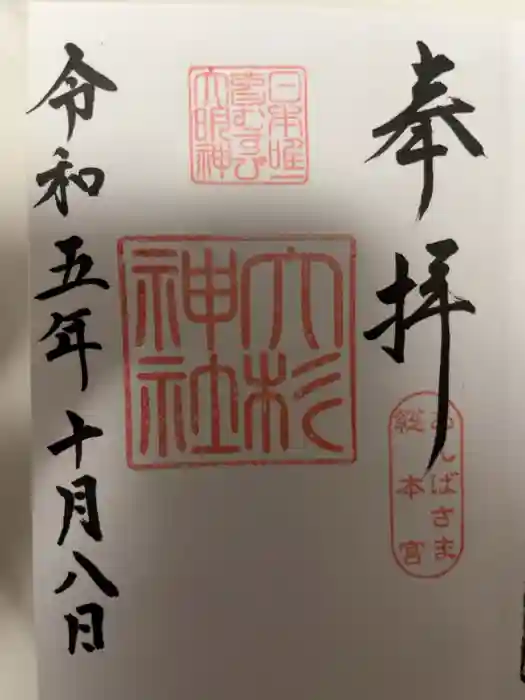 奉拝
あんばさま
総本宮
日本唯一
夢むすび
大明神
大杉
神社
令和五年十月八日